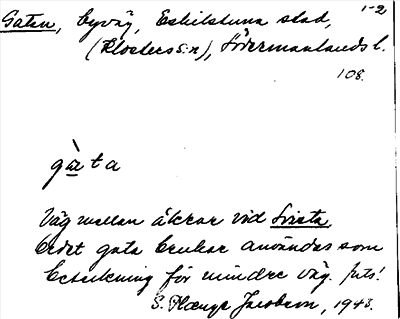 1-2
Gatan, byväg, Eskilstuna stad,
(Klosters s:n), Södermanlands l.
108.
gàta
Väg mellan åkrar vid Svista.
Ordet gata brukar användas som
beteckning för mindre väg. Jfr!
S. Jacobson, 1943.